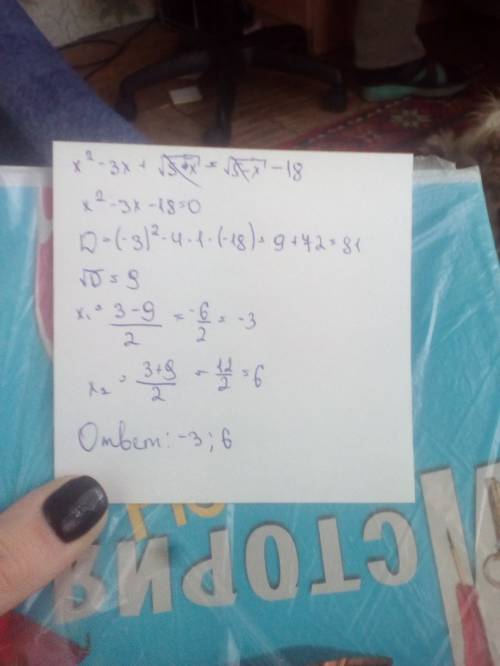 x² - 3x + √5-x = √5-x - 18
x² - 3x - 18 = 0
D = (-3)² - 4 · 1 · (-18) = 9 + 72 = 81
√D = 9
x₁ = (3-9)/2 = -6/2 = -3
x₂ = (3+9)/2 = 12/2 = 6
Ответ: -3; 6
СТОРИЯ